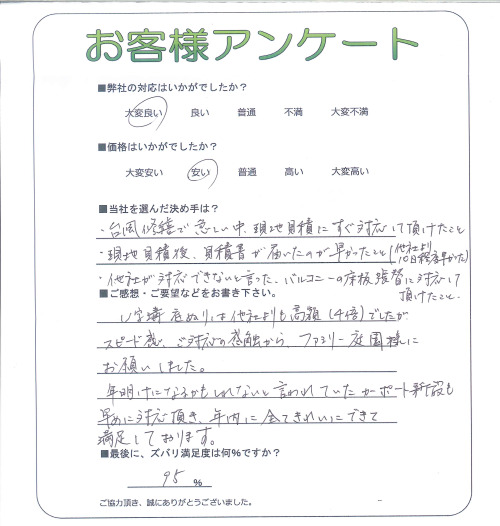 お客様アンケート
■弊社の対応はいかがでしたか?
大変良い 良い 普通 不満 大変不満
■価格はいかがでしたか?
大変安い 安い 普通 高い 大変高い
■当社を選んだ決め手は?
・台風修繕で忙しい中、現地見積にすぐ対応して頂けたこと
・現地見積後、見積書が届いたのが早かったこと(他社より10日程早かった)
・他社が対応できないと言った、バルコニーの床板張替に対応して
頂けたこと。
■ご感想・ご要望などをお書き下さい。
U字溝底ぬりは他社よりも高額(4倍)でしたが
スピード感、ご対応の感触から、ファミリー庭園様に
お願いしました。
年明けになるかもしれないと言われていたカーポート新設も
早めに対応頂き、年内に全てきれいにできて
満足しております。
■最後に、ズバリ満足度は何%ですか?
95 %
ご協力頂き、誠にありがとうございました。